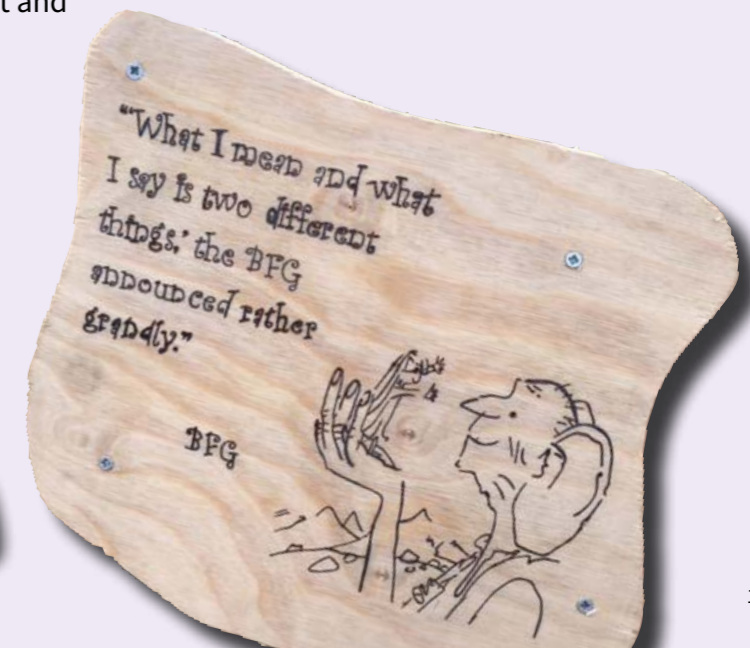 t and
"'What I mean and what
I say is two different
things,' the BFG
announced rather
grandly."
BFG